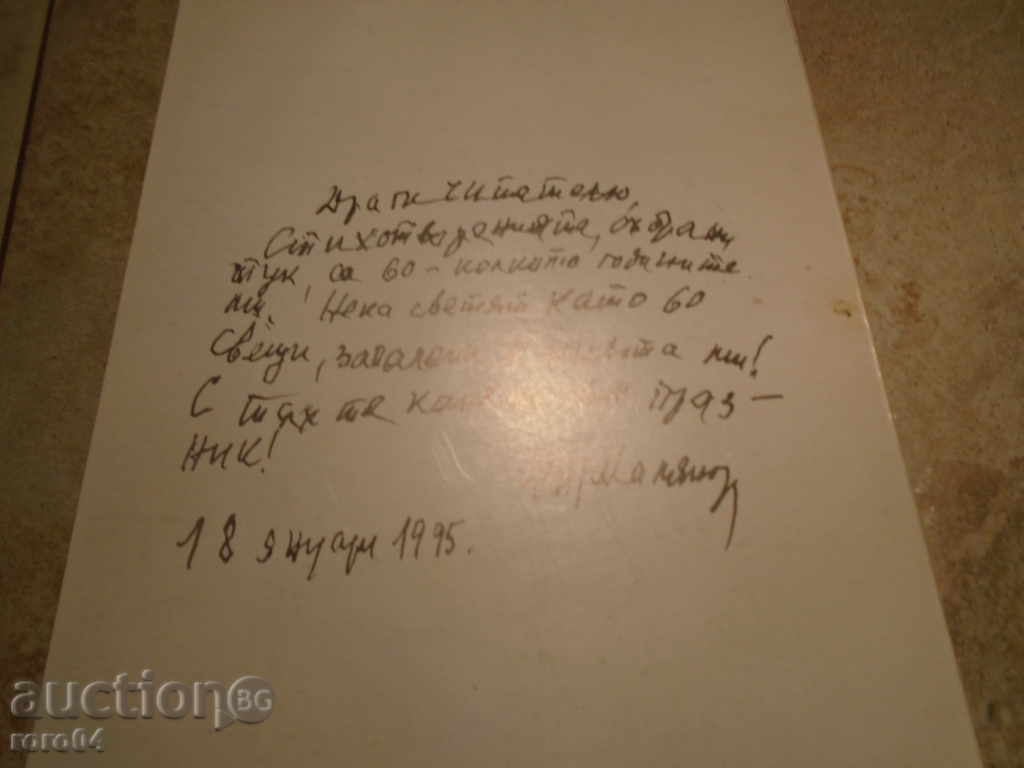 Драги читателю,
Стихотворенията, събрани
тук, са 60 - колкото годините
ми! Нека светят като 60
свещи, запалени та ми!
С тях те каня праз-
ник!
18 януари 1995.
auctionBG
roro04